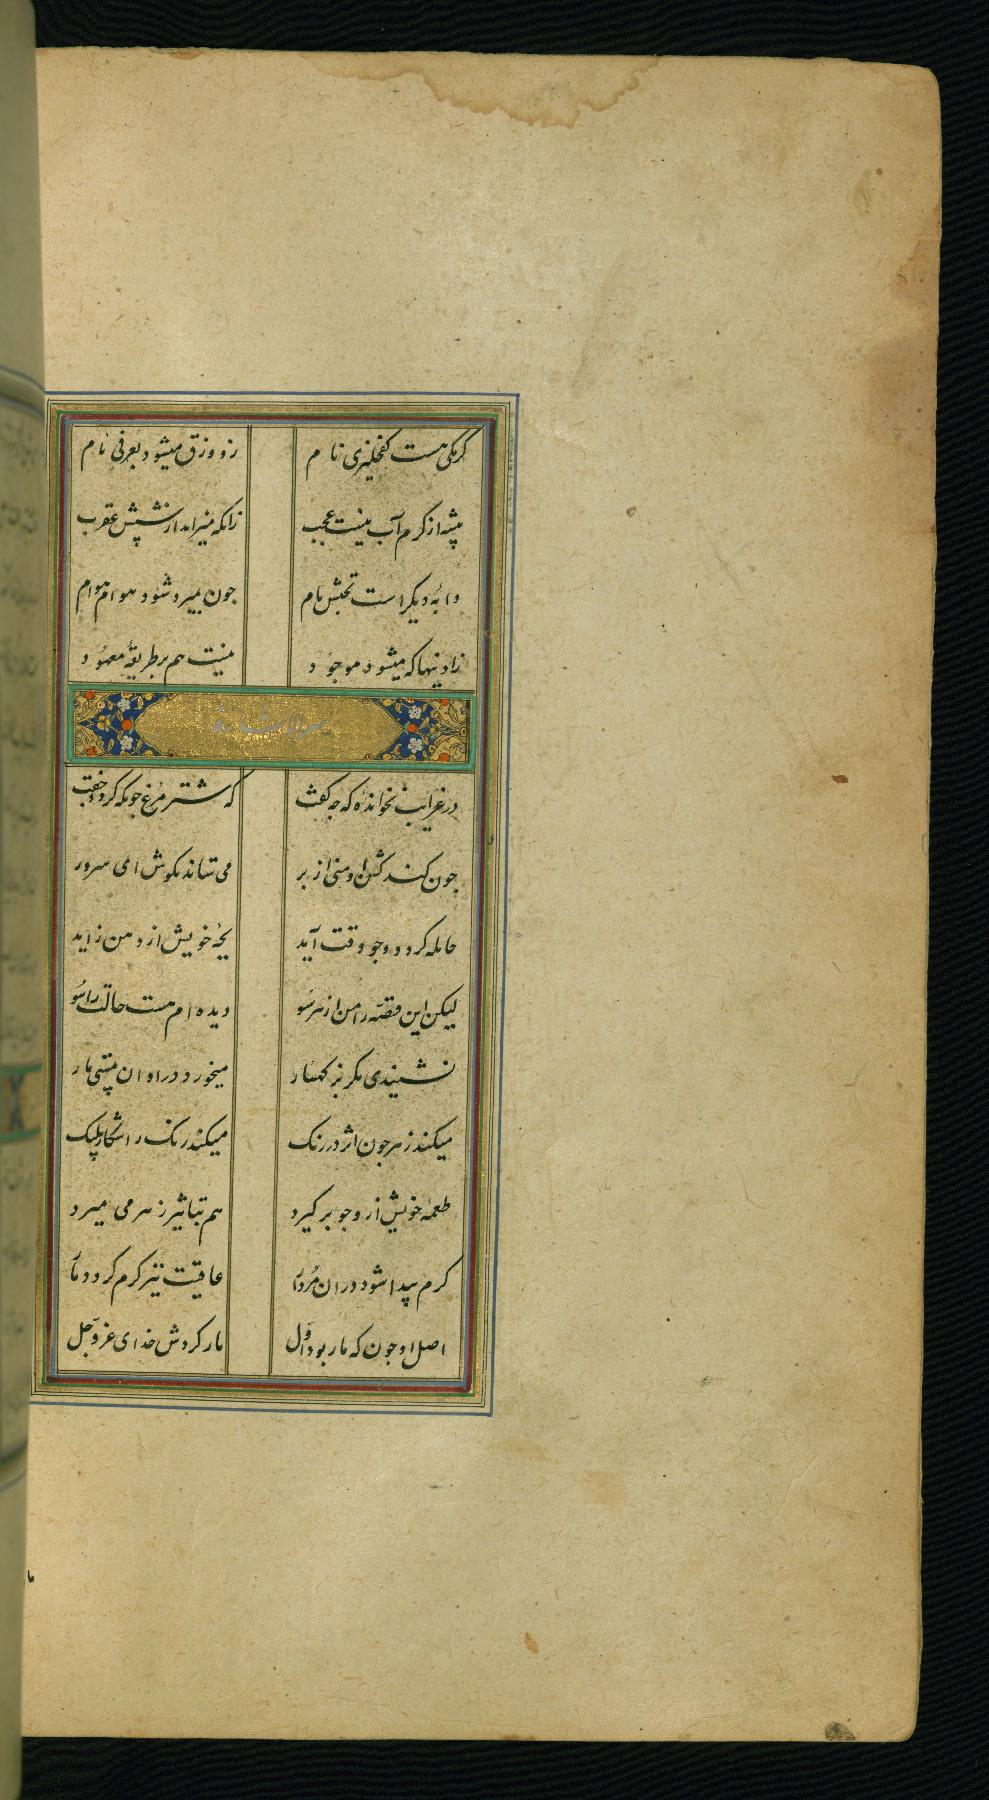 کرمکی هست کفچلیزی نام زو وزق میشود بعرفی نام
پشه از کرم آب نیست عجب زانکه میزاید از شپش عقرب
دابهٔ دیگر است نام چون بمیرد شود هوام هوام
زاد نیها که میشود موجود نیست هم بر طریقهٔ معهود
در غرایب نخوانده که چه گفت که شترمرغ چونکه گردد جفت
چون کند گشن او منی از بر می ستاند بگوش ای سرور
حامله گردد و چو وقت آید بچهٔ خویش از دهن زاید
لیکن این قصه را من از هر سو دیده ام هست حالت راسو
نشنیدی مگر بز کهسار میخورد در اوان مستی مار
میکند زهر چون اثر در رنگ میکند رنگ را شکار پلنگ
طعمهٔ خویش ازو چو بر گیرد هم بتاثیر زهر می میرد
کرم پیدا شود در ان مردار عاقبت نیز کرم گردد مار
اصل او چون که مار بود اول مار کردش خدای عز و جل